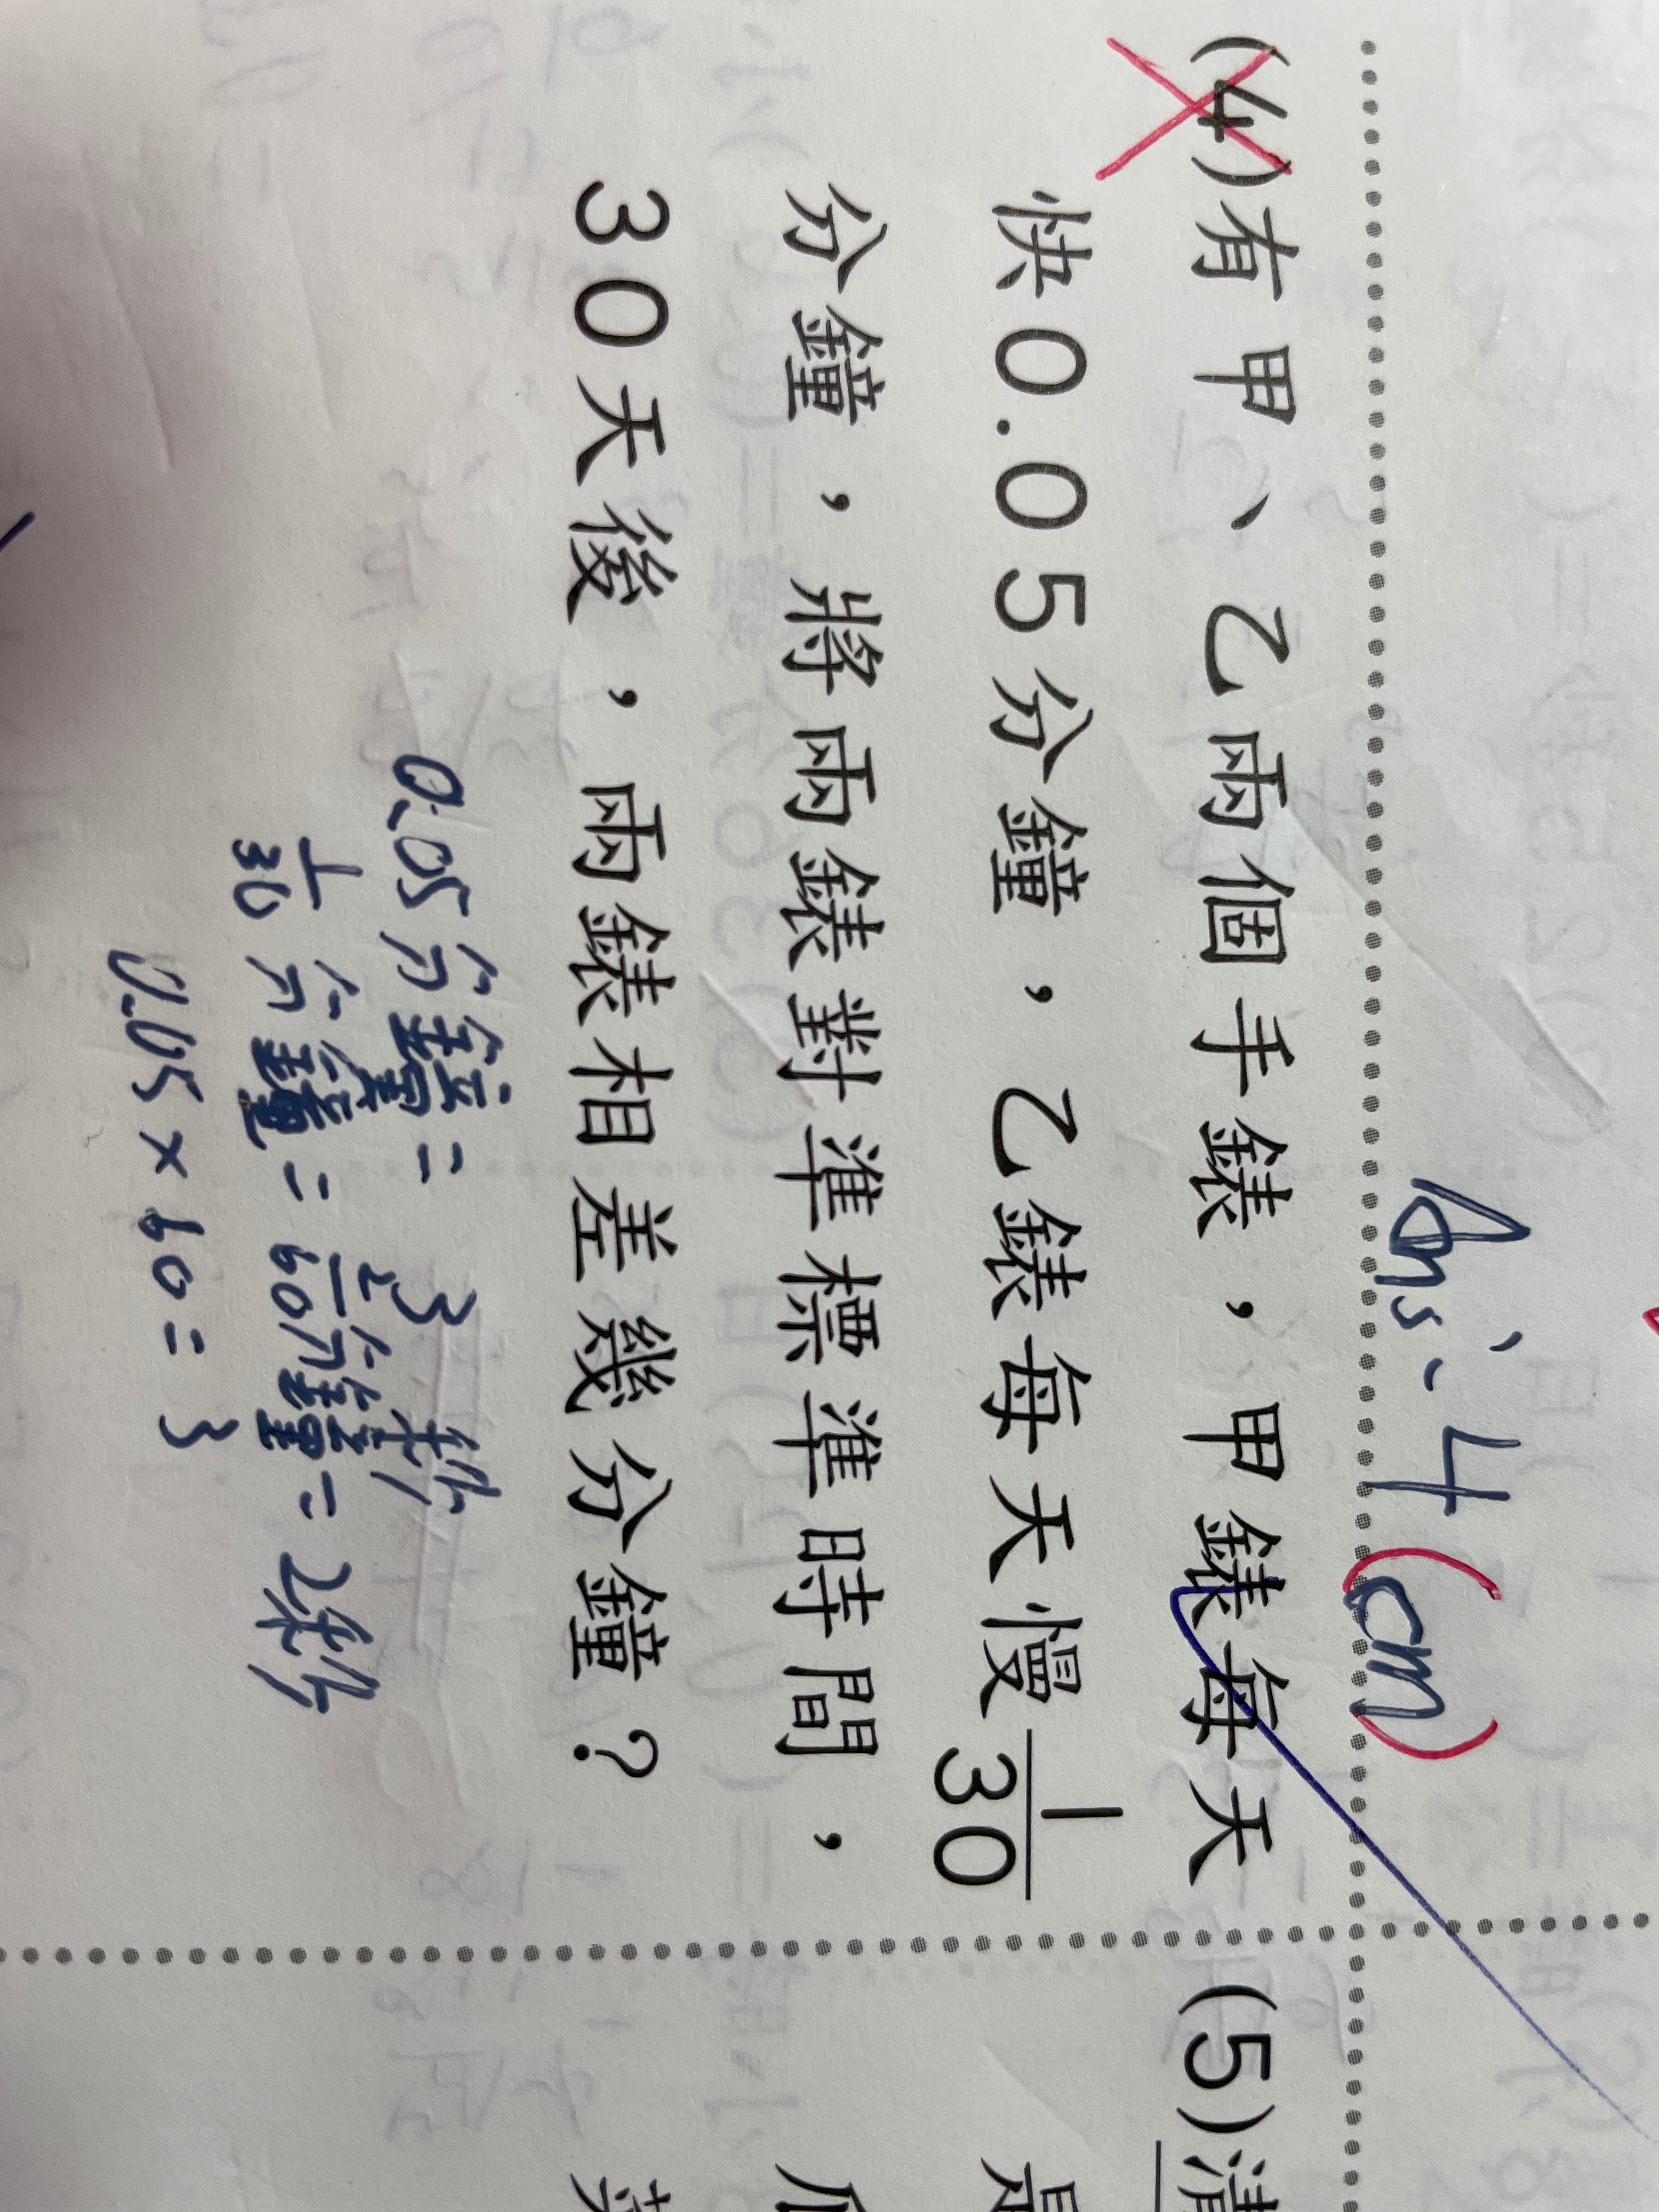 Ans: 4 (cm)
(4)有甲、乙兩個手錶，甲錶每天
快0.05分鐘，乙錶每天慢1/30
分鐘，將兩錶對準標準時間，
30天後，兩錶相差幾分鐘？
0.05分鐘= 3秒
1/30分鐘=2/60分鐘=2秒
0.05×60=3
(5)